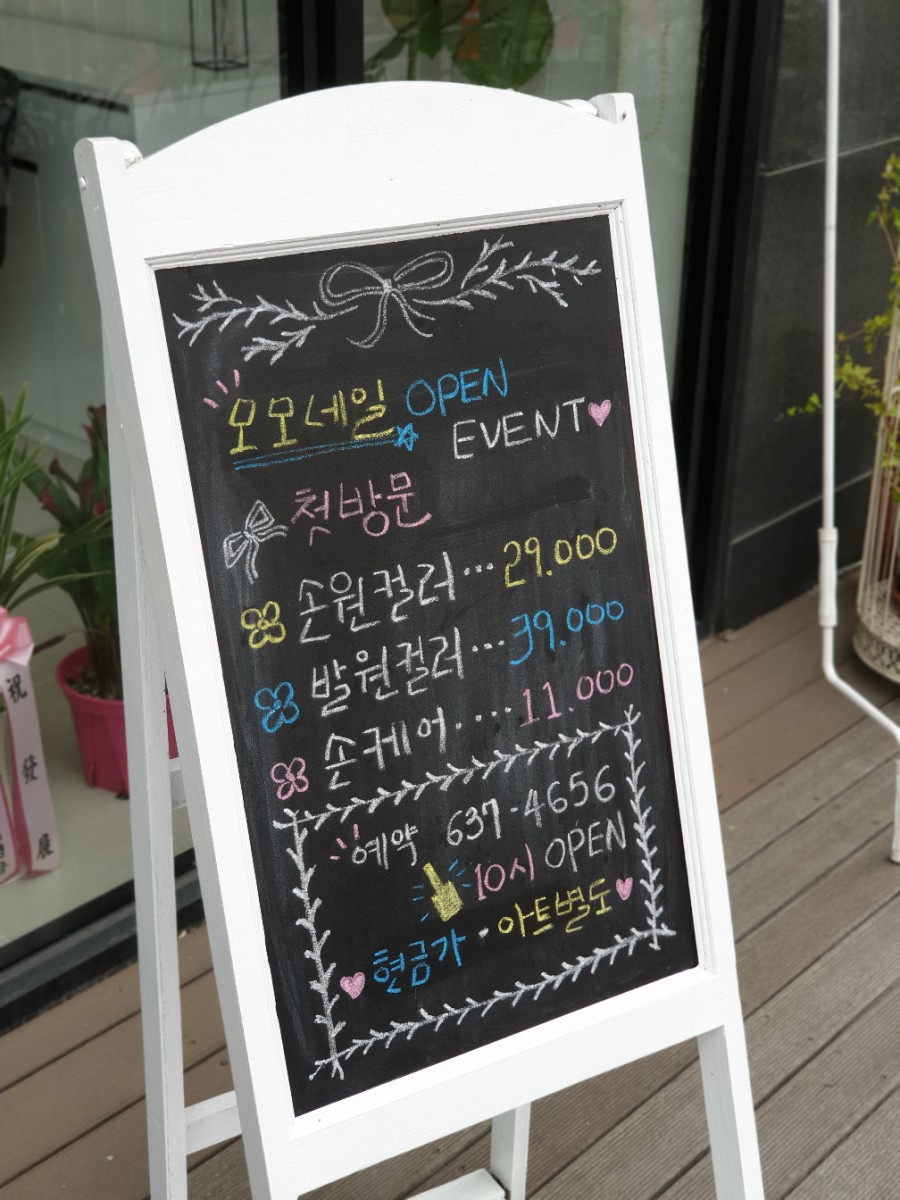 모모네일 OPEN
EVENT
첫방문
손원컬러...29.000
발원컬러...39.000
손케어....11.000
예약 637-4656
10시 OPEN
현금가·아트별도
祝
發
展